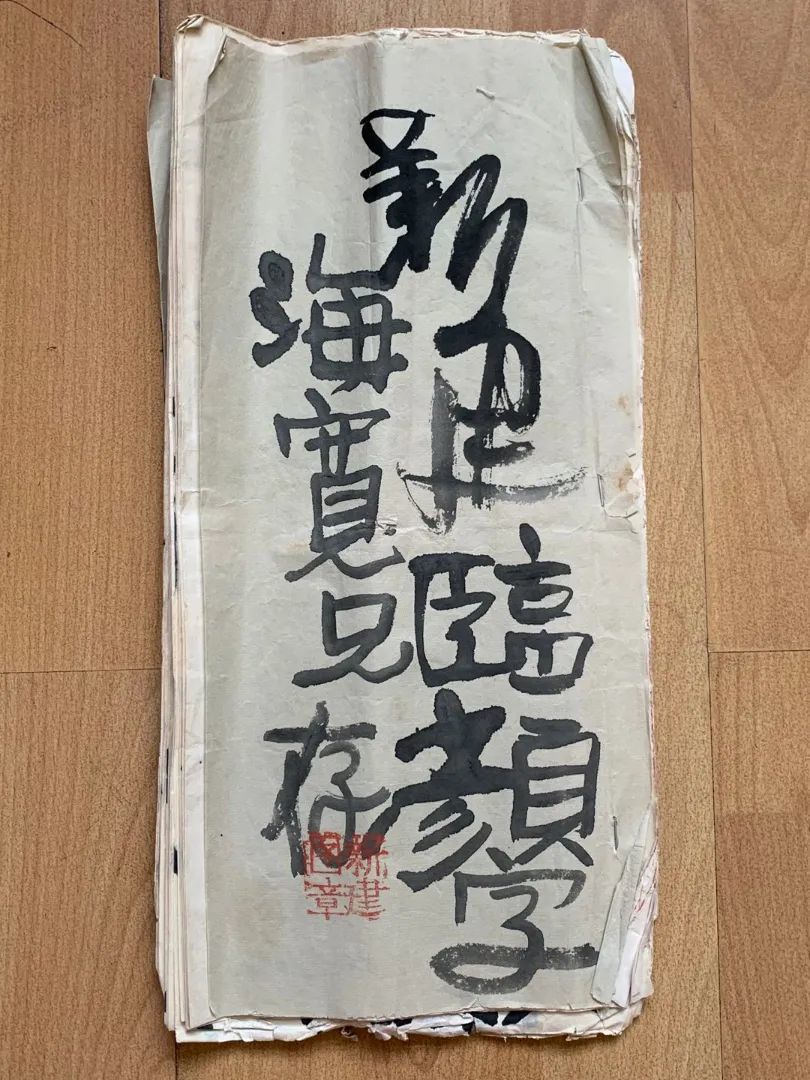 新建臨顏字
海寬兄存
新建
図章